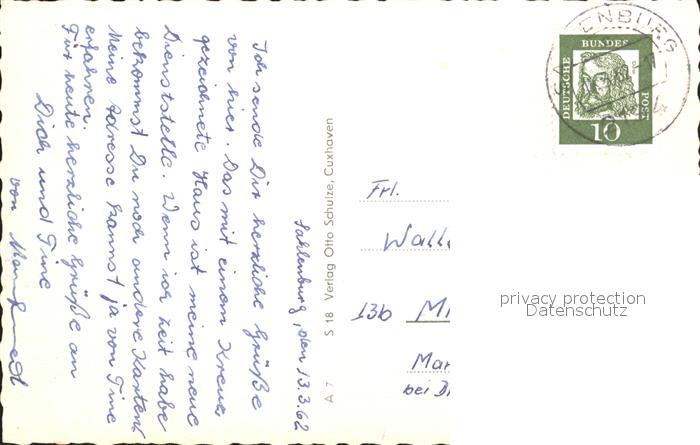 Sahlenburg, den 13.3.62
Ich sende Dir herzliche Grüße
von hier. Das mit einem Kreuz
gezeichnete Haus ist meine neue
Dienststelle. Wenn ich Zeit habe
bekommst Du noch andere Karten
Meine Adresse kannst ja von Tine
erfahren.
Für heute herzliche Grüße an
Dich und Tine
von Manfred
A 7 S 18 Verlag Otto Schulze, Cuxhaven
DEUTSCHE
BUNDES
POST
10
Frl.
Wall
13b M
Mar
bei D
privacy protection
Datenschutz